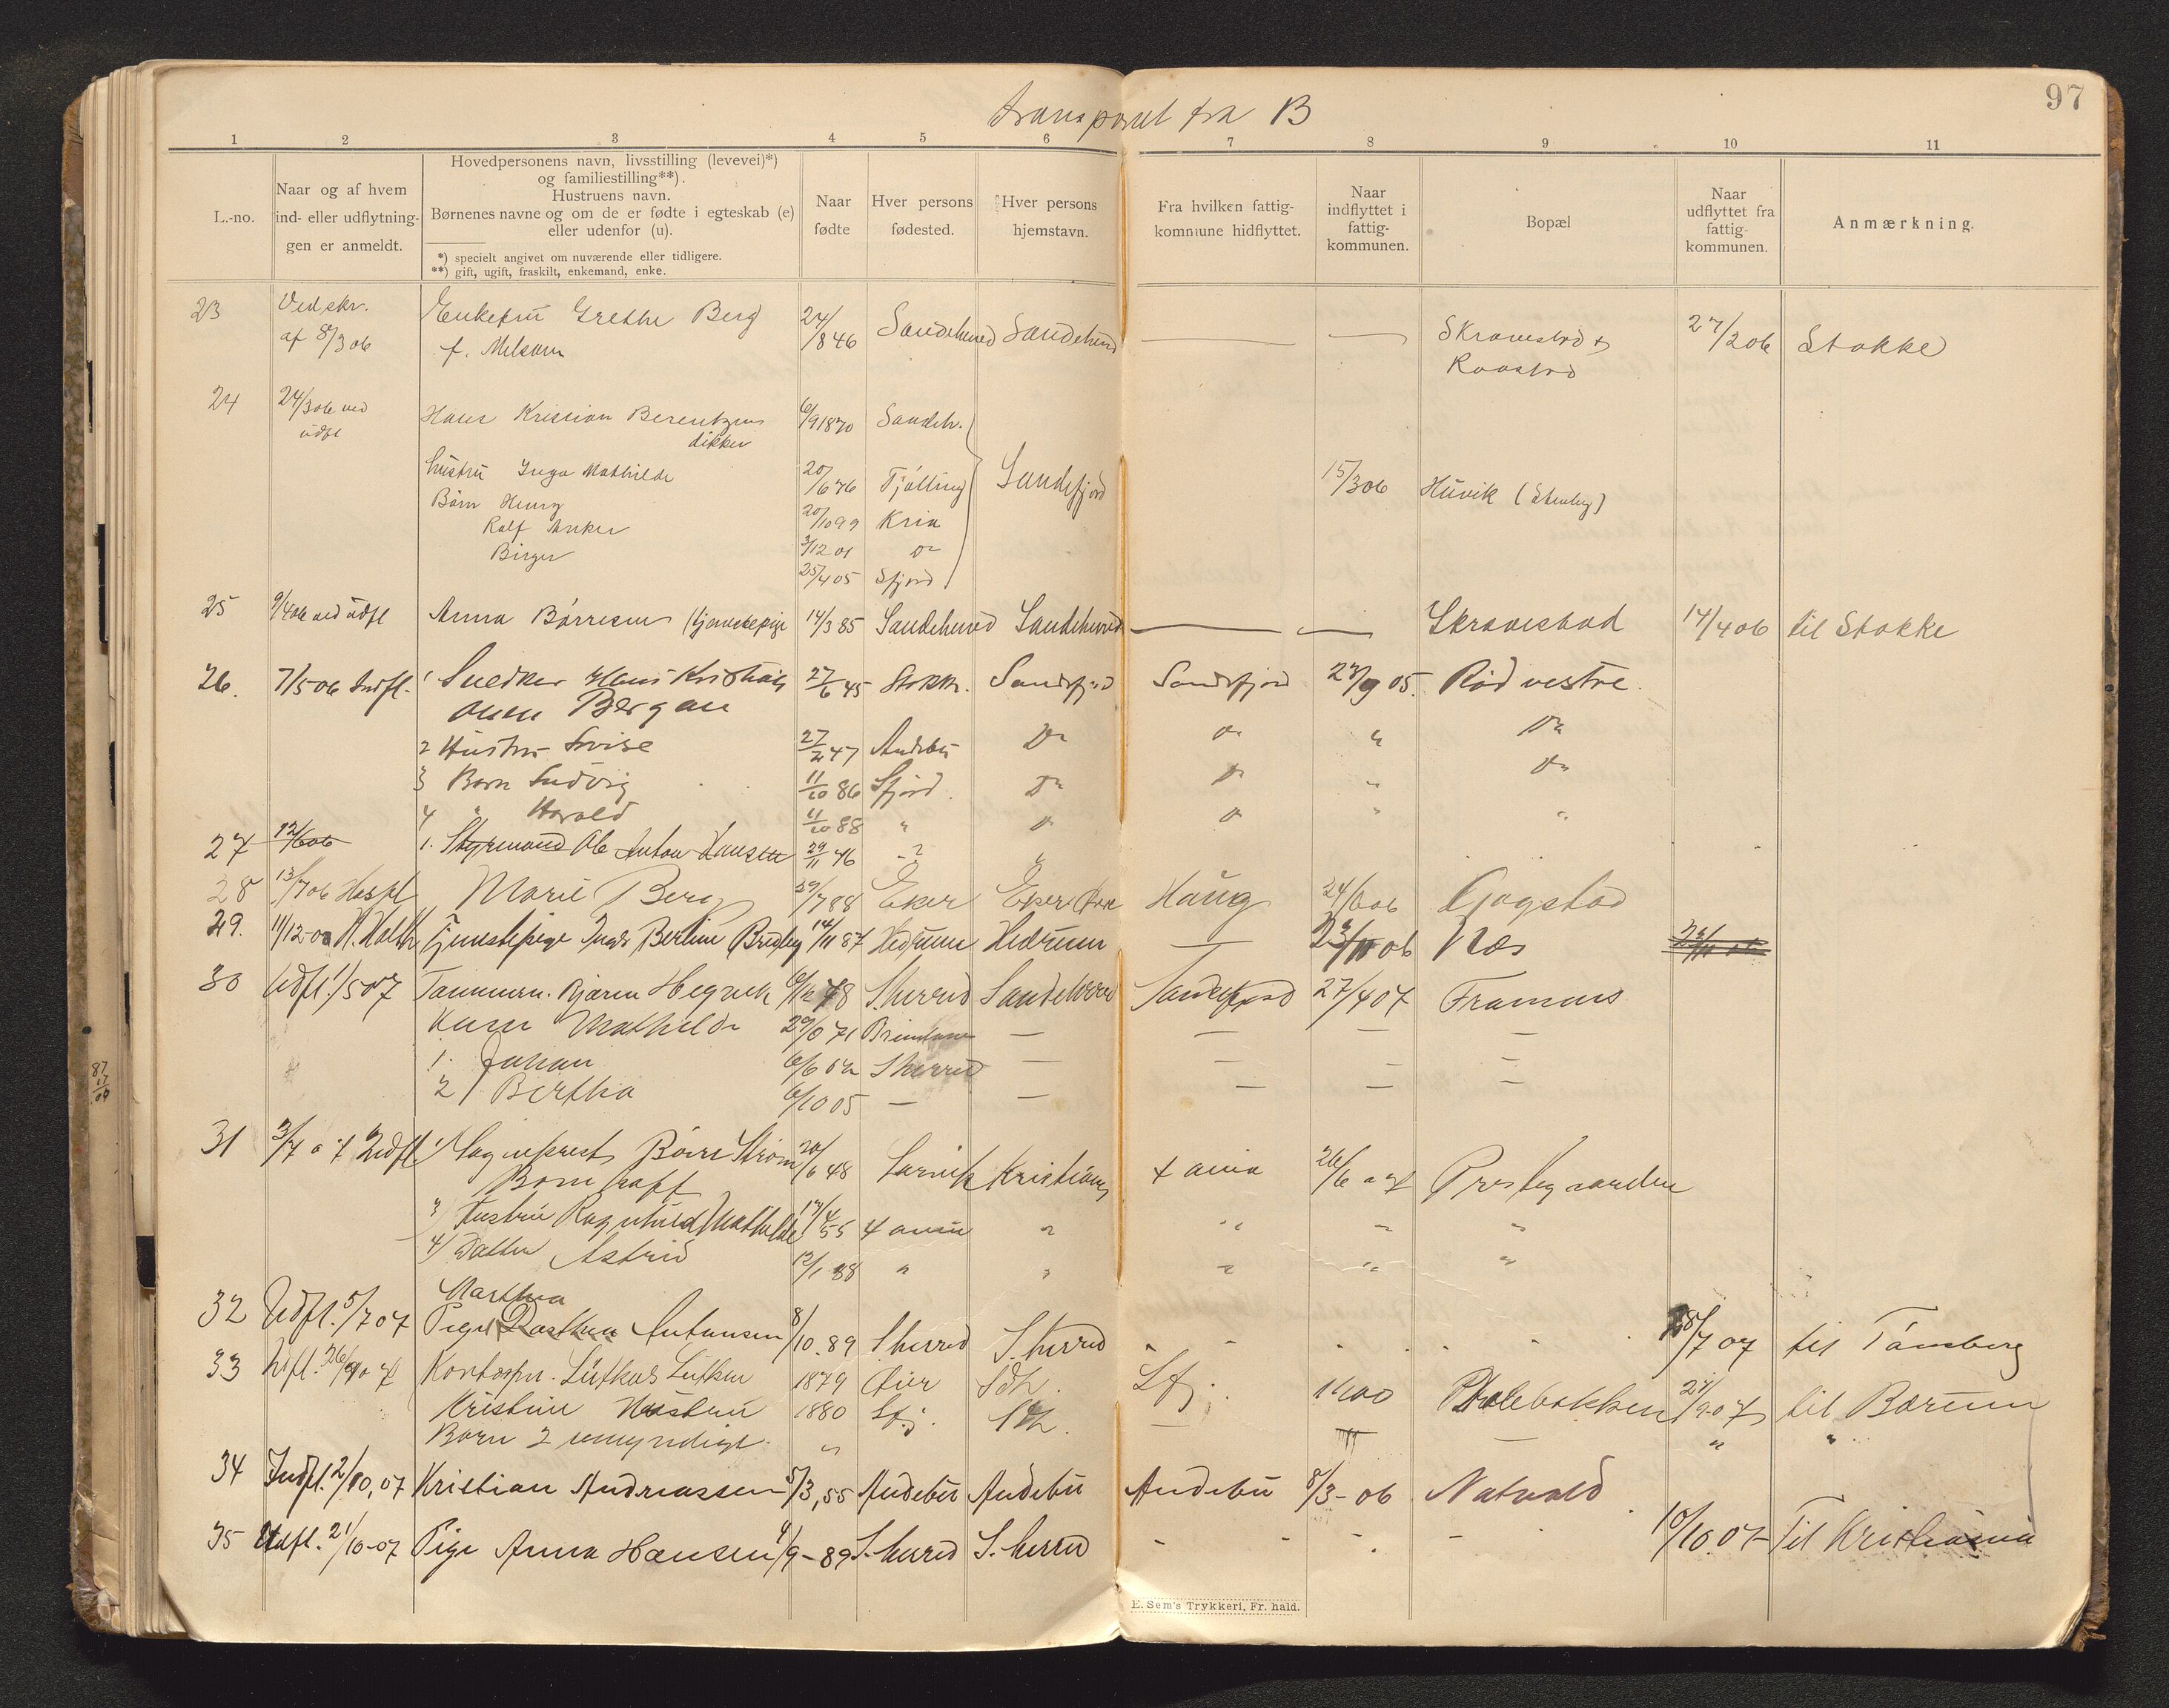 97
transport fra B
1 2 3 4 5 6 7 8 9 10 11
L.-no.
Naar og af hvem
ind- eller udflytnin-
gen er anmeldt.
Hovedpersonens navn, livsstilling (levevei)*)
og familiestilling**).
Hustruens navn.
Børnenes navne og om de er fødte i egteskab (e)
eller udenfor (u).
*) specielt angivet om nuværende eller tidligere.
**) gift, ugift, fraskilt, enkemand, enke.
Naar
fødte
Hver persons
fødested.
Hver persons
hjemstavn.
Fra hvilken fattig-
kommune hidflyttet.
Naar
indflyttet i
fattig-
kommunen.
Bopæl
Naar
udflyttet fra
fattig-
kommunen.
Anmærkning.
23 Ved skr. Enkefru Grethe Berg 24/8 46 Sandeherred Sandeherred — — Skravestad + 27/2 06 Stokke
af 8/3 06 f. Melsom Raastad
24 24/3 06 ved Hans Kristian Berentzen 6/9 1870 Sandeh.
udfl dikker
hustru Inga Mathilde 20/6 76 Tjølling Sandefjord 15/3 06 Huvik
Børn Henry 20/10 99 Kria
Ralf Anker 3/12 01 Do
Birger 25/4 05 Sfjord
25 9/4 06 ved udfl Anna Børresen (tjenestepige 14/3 85 Sandeherred Sandeherred — — Skravestad 14/4 06 til Stokke
26. 7/5 06 Indfl. 1 Snedker Hans Kristian 27/6 45 Stokk. Sandefjord Sandefjord 28/9 05. Rød vestre.
Olsen Bergan
2 Hustru Lovise 27/2 47 Andebu Do Do " Do
3 Barn Ludvig 11/10 86 Sfjord. Do Do " Do
4 " Harald 11/10 88 " Do Do " "
27 12/6 06 1. Styrmand Ole Anton Hansen 29/11 46 - ? "
28 13/7 06 Marie Berg 29/7 88 Eker Eker Haug 24/6 06 Gogstad
29. 11/12-0 Tjenestepige Inga Berline 14/11 87 Hedrum Hedrum — 23/11 06 Næs 23/11 06
30 Udfl 1/5 07 Tømmerm. Bjarne 6/12 78 S.herred Sandeherred Sandefjord 27/4 07 Framnes
Kone Mathilde 29/0 71 — — — —
1. Johan 6/6 02 S herred — — — —
2/ Bertha 6/10 05 — — — — —
31 3/7 07 Indfl 1/ Sogneprest Børre Strøm 20/6 48 Larvik Kristiania X ania 26/6 07 Prestegaarden
Bornhoft
3) Hustru Ragnhild Mathilde 14/4 55 X ania " " " "
4/ Datter Astrid 12/1 88 " " " " "
Marthea
32 Udfl. 5/7 07 Pige Antonsen 8/10. 89 S herred S. herred " - . . - 28/7 07 til Tønsberg
33 Udfl. 26/9 07 Kontorfm. Lütken 1879 Sdh. Sfj. 1900 27/9 07 til Bærum
Kristine Hustru 1880 Sfj. Sdh. —
Børn 2 umyndige. " — " "
34 Indfl. 2/10, 07 Kristian Andreassen 5/3, 55 Andebu Andebu Andebu 8/3-06 Natvald
35 Udfl. 21/10-07 Pige Anna Hansen 4/9-89 S. herred S. herred - - . - . 10/10.07 Til Kristiania
87
17
09
E. Sem's Trykkeri, Fr. hald.